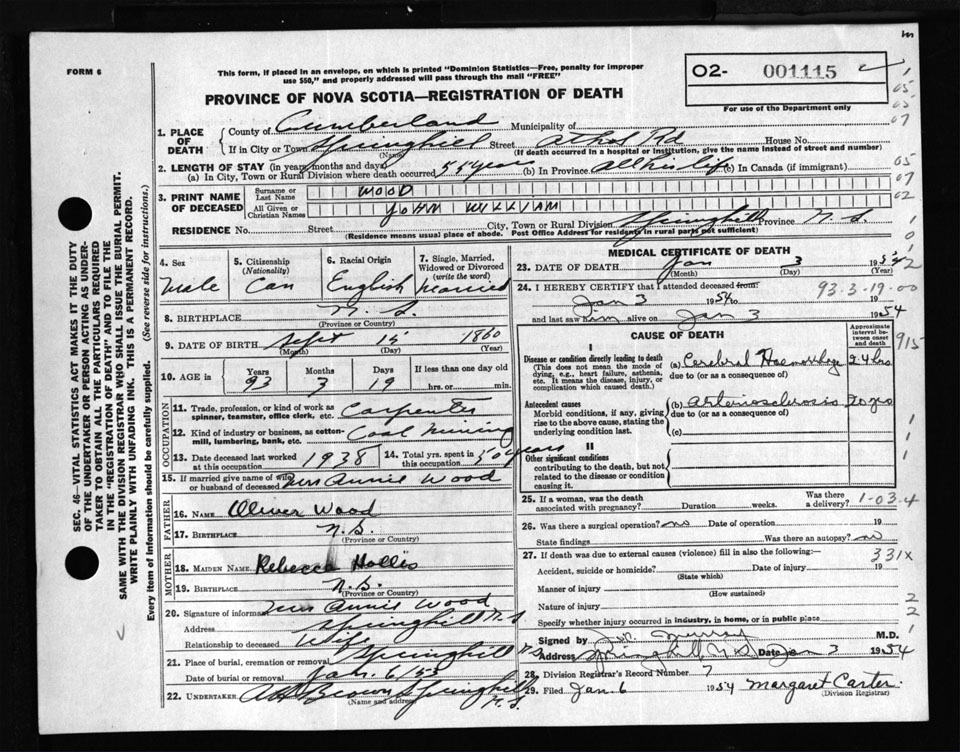 FORM 6
This form, if placed in an envelope, on which is printed "Dominion Statistics—Free, penalty for improper
use $50," and properly addressed will pass through the mail "FREE"
PROVINCE OF NOVA SCOTIA—REGISTRATION OF DEATH
O2- 001115
For use of the Department only
1. PLACE OF DEATH
County of Cumberland Municipality of
If in City or Town Springhill Street Rd House No.
(Name) (If death occurred in a hospital or institution, give the name instead of street and number)
2. LENGTH OF STAY (in years, months and days)
(a) In City, Town or Rural Division where death occurred 54 years (b) In Province All his life (c) In Canada (if immigrant)
3. PRINT NAME OF DECEASED
Surname or Last Name WOOD
All Given or Christian Names JOHN WILLIAM
RESIDENCE No. Street City, Town or Rural Division Springhill Province N.S.
(Residence means usual place of abode. Post Office Address for residents in rural parts not sufficient)
4. Sex Male
5. Citizenship (Nationality) Can
6. Racial Origin English
7. Single, Married, Widowed or Divorced (write the word) Married
8. BIRTHPLACE N.S.
(Province or Country)
9. DATE OF BIRTH Sept 15 1860
(Month) (Day) (Year)
10. AGE in Years 93 Months 3 Days 19 If less than one day hrs. or min.
OCCUPATION
11. Trade, profession, or kind of work as spinner, teamster, office clerk, etc. Carpenter
12. Kind of industry or business, as cotton-mill, lumbering, bank, etc. Coal Mining
13. Date deceased last worked at this occupation 1938
14. Total yrs. spent in this occupation 50 years
15. If married give name of wife or husband of deceased Mrs Annie Wood
FATHER
16. NAME Oliver Wood
17. BIRTHPLACE N.S.
(Province or Country)
MOTHER
18. MAIDEN NAME Rebecca Hollis
19. BIRTHPLACE N.S.
(Province or Country)
20. Signature of informant Mrs Annie Wood
Address Springhill N.S
Relationship to deceased Wife
21. Place of burial, cremation or removal Springhill N.S
Date of burial or removal Jan. 6/53
22. UNDERTAKER Brown Springhill N.S.
(Name and address)
MEDICAL CERTIFICATE OF DEATH
23. DATE OF DEATH Jan 3 1954
(Month) (Day) (Year)
24. I HEREBY CERTIFY that I attended deceased from:
Jan 3 1954 to 19
and last saw him alive on Jan 3 1954
93-3-19-00
CAUSE OF DEATH
Approximate interval between onset and death
I
Disease or condition directly leading to death
(This does not mean the mode of dying, e.g., heart failure, asthenia, etc. It means the disease, injury, or complication which caused death.)
(a) Cerebral Haemorrhage 24 hrs
due to (or as a consequence of)
Antecedent causes
Morbid conditions, if any, giving rise to the above cause, stating the underlying condition last.
(b) Arteriosclerosis 20 yrs
due to (or as a consequence of)
(c)
II
Other significant conditions
contributing to the death, but not related to the disease or condition causing it.
915
25. If a woman, was the death associated with pregnancy? Duration weeks. Was there a delivery?
1-03.4
26. Was there a surgical operation? no Date of operation 19
State findings Was there an autopsy? no
27. If death was due to external causes (violence) fill in also the following:—
331X
Accident, suicide or homicide? Date of injury 19
(State which)
Manner of injury
(How sustained)
Nature of injury
Specify whether injury occurred in industry, in home, or in public place
Signed by Murray M.D.
Address Springhill N.S Date Jan 3 1954
28. Division Registrar's Record Number 7
29. Filed Jan. 6 1954 Margaret Carter
(Division Registrar)
SEC. 46—VITAL STATISTICS ACT MAKES IT THE DUTY
OF THE UNDERTAKER OR PERSON ACTING AS UNDER-
TAKER TO OBTAIN ALL THE PARTICULARS REQUIRED
IN THE "REGISTRATION OF DEATH" AND TO FILE THE
SAME WITH THE DIVISION REGISTRAR WHO SHALL ISSUE THE BURIAL PERMIT.
WRITE PLAINLY WITH UNFADING INK. THIS IS A PERMANENT RECORD.
Every item of information should be carefully supplied. (See reverse side for instructions.)